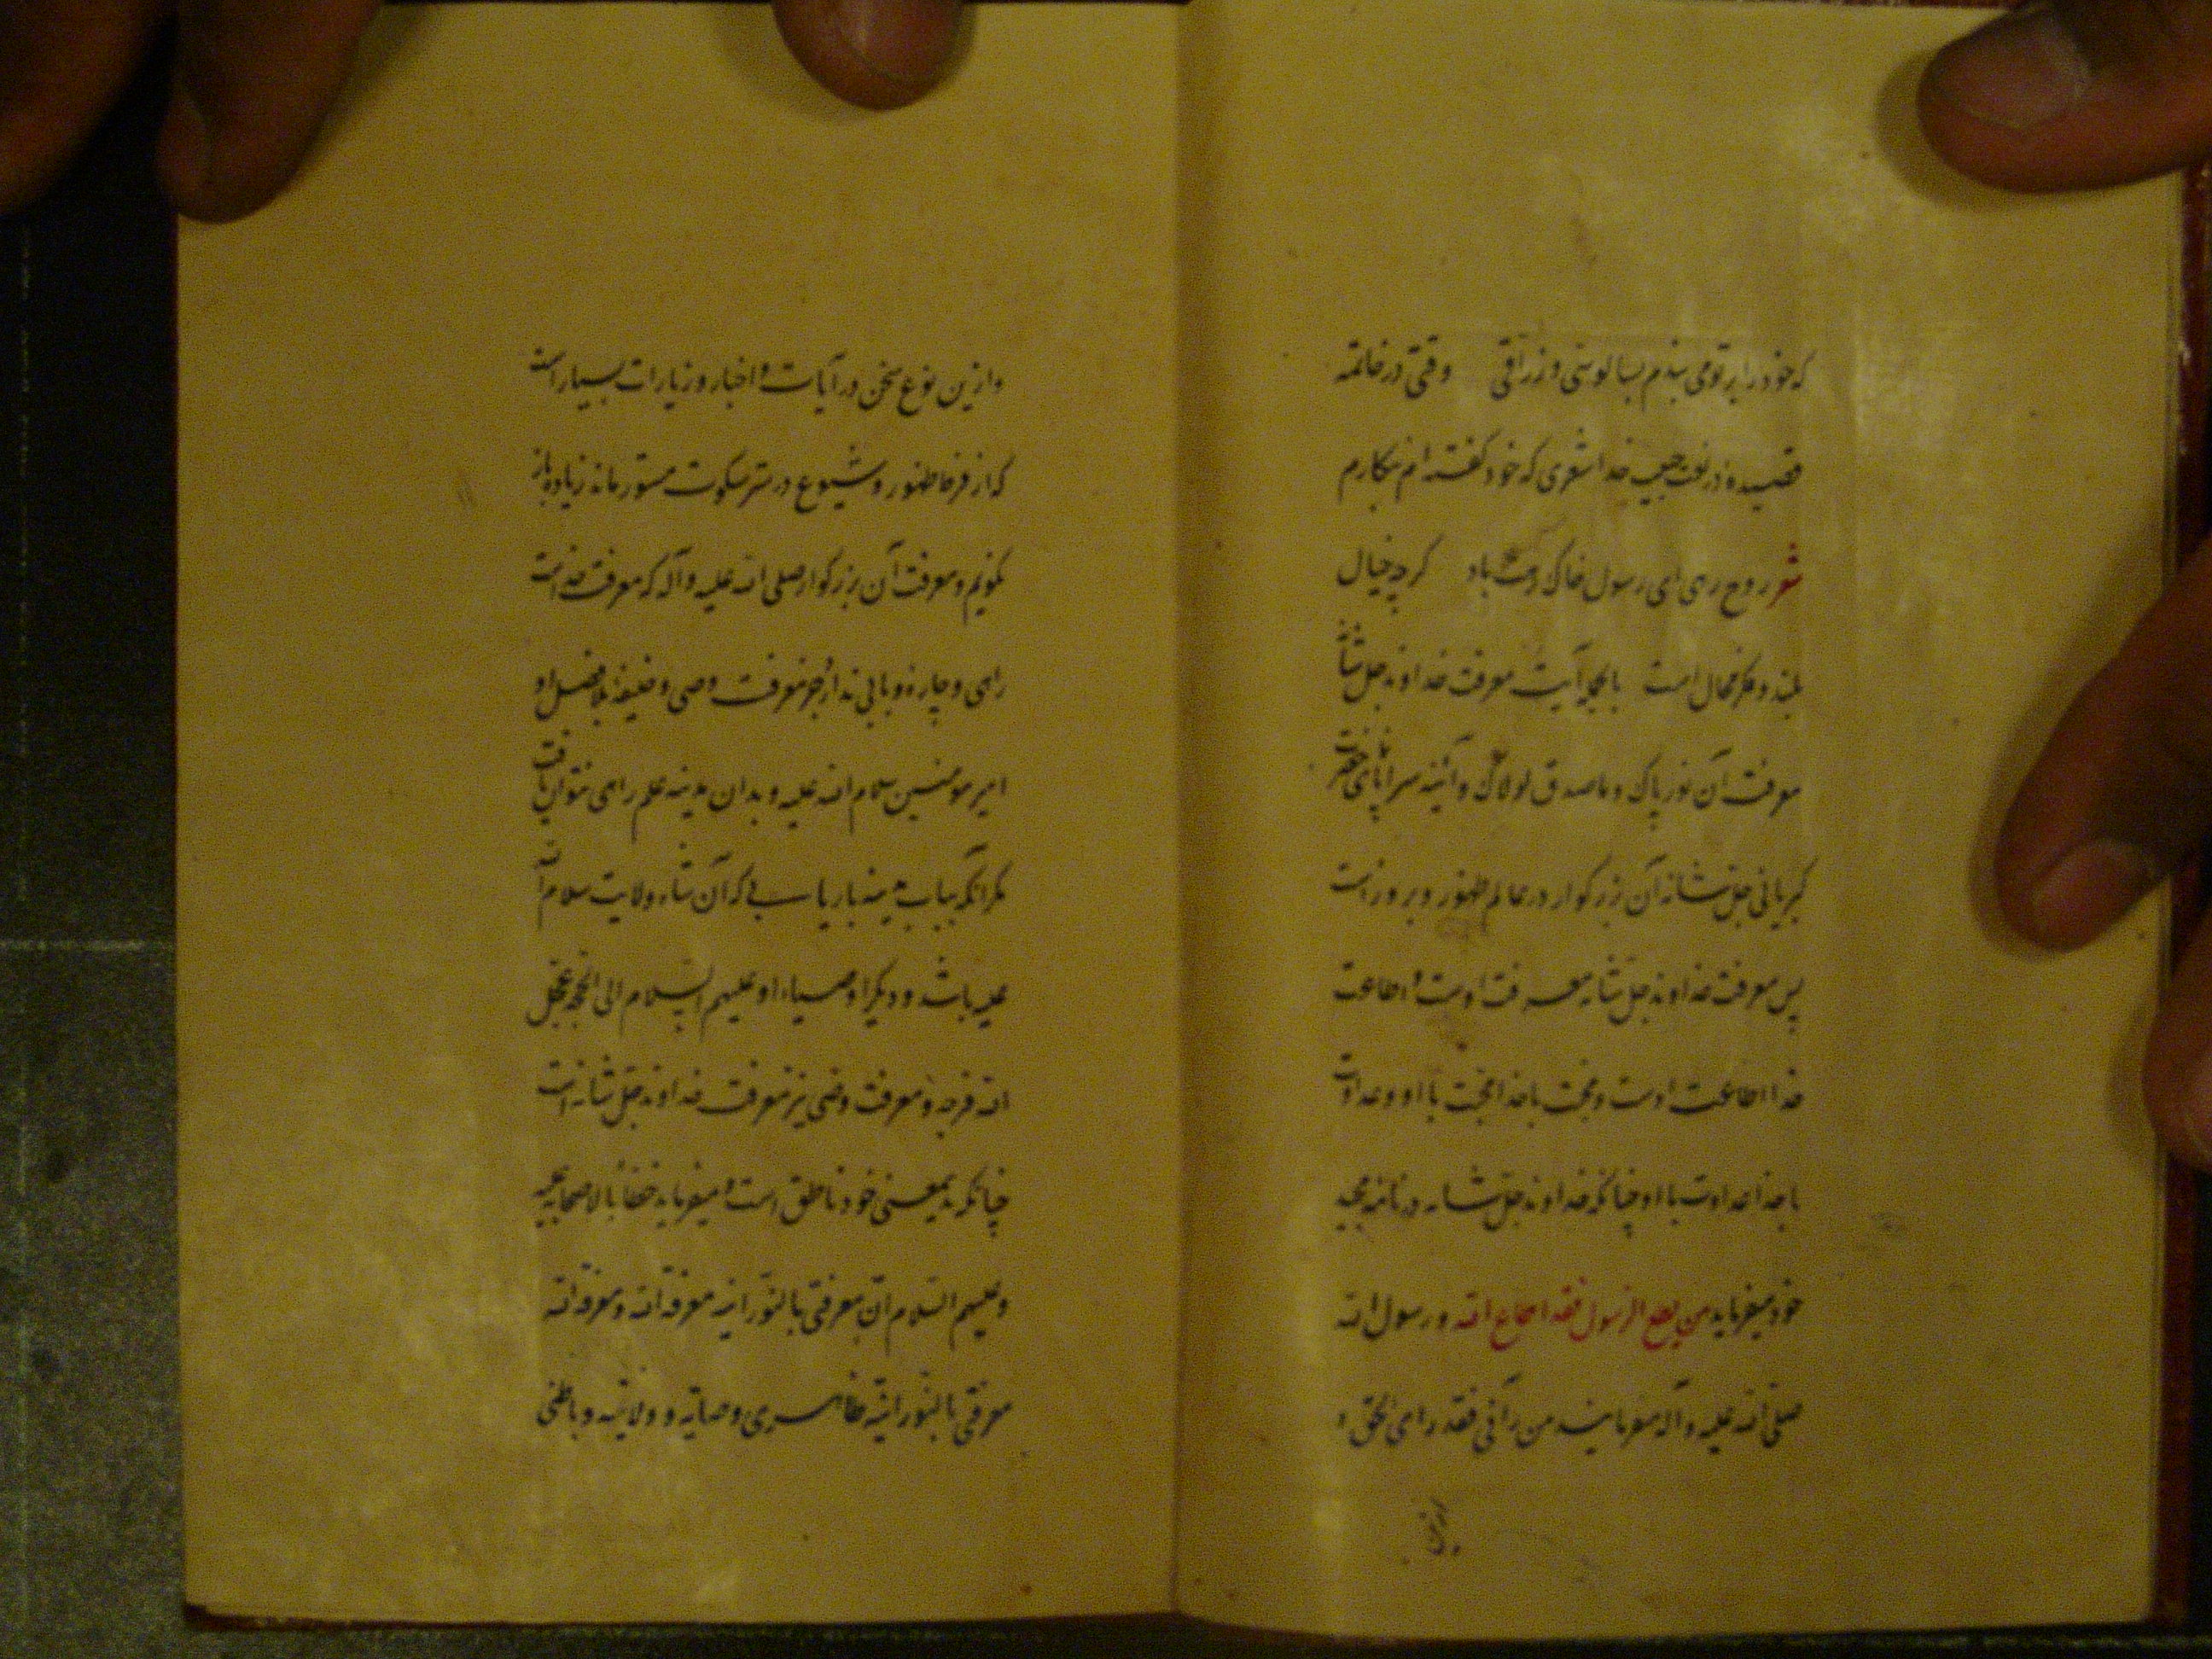 که خود را بر تو می بندم بسالوسی و زراقی وقتی در خاتمه
قصیده در نعت حبیب خدا شعری که خود گفته ام مینکارم
شعر روح رهی ای رسول خاک رهت باد گرچه خیال
بلند و فکر محال است بالجمله آیت معرفت خداوند جل شانه
معرفت آن نور پاک و ماصدق لولاک و آئینه سراپای حضرت
کبریائی جل شانه آن بزرگوار در عالم ظهور و بروز است
پس معرفت خداوند جل شانه معرفت اوست و اطاعت
خدا اطاعت اوست و محبت با خدا محبت با او و عداوت
با خدا عداوت با او چنانکه خداوند جل شانه در نامه مجید
خود میفرماید من یطع الرسول فقد اطاع الله و رسول الله
صلی الله علیه و آله میفرمایند من رآنی فقد رای الحق و
وازین نوع سخن در آیات و اخبار و زیارات بسیار است
که از فرط ظهور و شیوع در ستر سکوت مستور ماند زیاده باز
نگویم و معرفت آن بزرگوار صلی الله علیه و آله که معرفت خداست
راهی و چاره و بابی ندارد جز معرفت وصی و خلیفه بلا فصل او
امیر مومنین سلام الله علیه و بدان مدینه علم راهی نتوان یافت
مگر آنکه بباب مدینه باریاب که آن شاه ولایت سلام الله
علیه باشد و دیگر اوصیاء او علیهم السلام الی الحجة عجل
الله فرجه و معرفت وصی نیز معرفت خداوند جل شانه است
چنانکه بدیمعنی خود ناطق است و میفرماید خطابا لاصحابه علیه
و علیهم السلام ان معرفتی بالنورانیه معرفة الله و معرفة الله
معرفتی بالنورانیة ظاهری وصایته و ولایته و باطنی